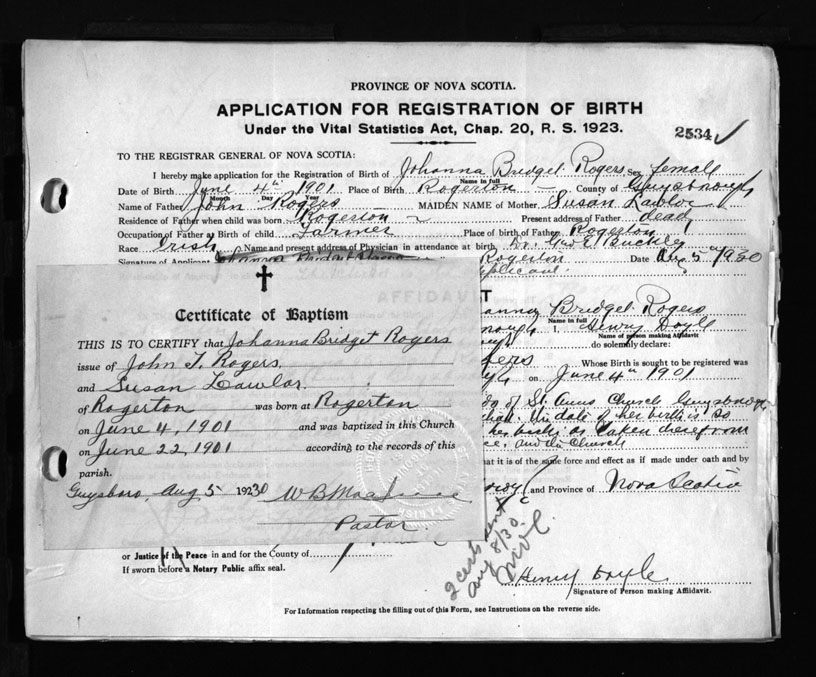 PROVINCE OF NOVA SCOTIA.
APPLICATION FOR REGISTRATION OF BIRTH
Under the Vital Statistics Act, Chap. 20, R. S. 1923.
2534
TO THE REGISTRAR GENERAL OF NOVA SCOTIA:
I hereby make application for the Registration of Birth of Johanna Bridget Rogers Sex female
Name in full
Date of Birth June 4th 1901 Place of Birth Rogerton County of Guysborough
Month Day Year
Name of Father John Rogers MAIDEN NAME of Mother Susan Lawlor
Residence of Father when child was born Rogerton Present address of Father dead
Occupation of Father at Birth of child Farmer Place of birth of Father Rogerton
Race Irish Name and present address of Physician in attendance at birth Dr. Geo E Buckley
Signature of Applicant Johanna Rogerton Date Aug 5th 1930
Applicant
AFFIDAVIT
Bridget Rogers
Name in full
I, Henry Doyle
Name of person making Affidavit
do solemnly declare:
Whose Birth is sought to be registered was
on June 4th 1901
of St. Anns Church Guysborough
The date of her birth is so
taken therefrom
Church
that it is of the same force and effect as if made under oath and by
and Province of Nova Scotia
Certificate of Baptism
THIS IS TO CERTIFY that Johanna Bridget Rogers
issue of John T. Rogers
and Susan Lawlor
of Rogerton was born at Rogerton
on June 4, 1901 and was baptized in this Church
on June 22, 1901 according to the records of this
parish.
Guysboro, Aug 5 19230 W B
Pastor
or Justice of the Peace in and for the County of
If sworn before a Notary Public affix seal.
2 cert sent
Aug 8/30
Henry Doyle
Signature of Person making Affidavit.
For Information respecting the filling out of this Form, see Instructions on the reverse side.